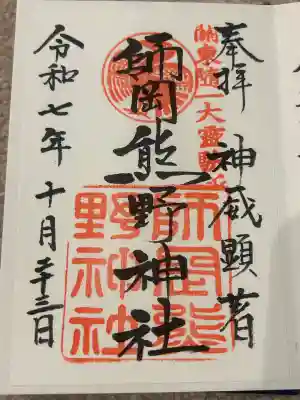 奉拝 神威顕著
関東随一大霊験所
師岡熊野神社
師岡熊野神社
令和七年十月二十三日